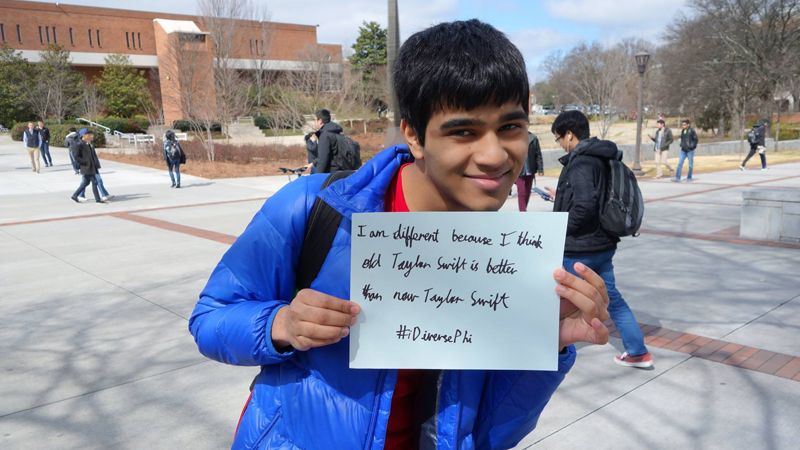 I am different because I think
old Taylor Swift is better
than now Taylor Swift
#iDiversePhi